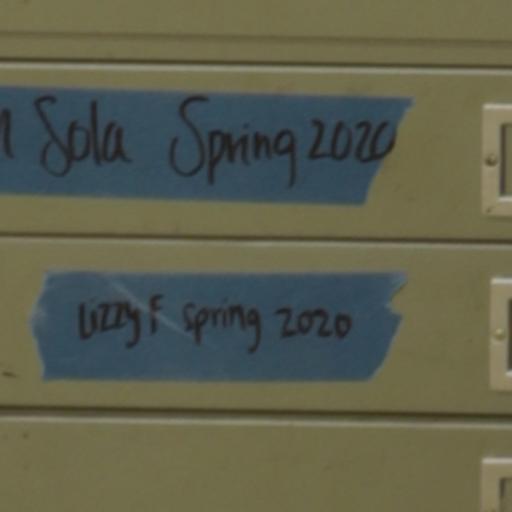 Sola Spring 2020
Lizzy F spring 2020